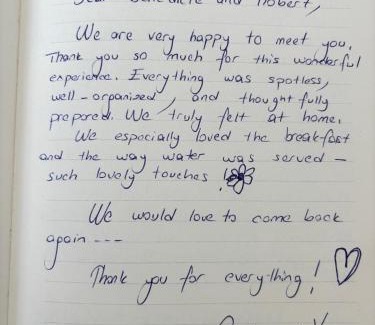 Dear Bénédicte and Robert,
We are very happy to meet you.
Thank you so much for this wonderful
experience. Everything was spotless,
well-organized, and thoughtfully
prepared. We truly felt at home.
We especially loved the breakfast
and the way water was served –
such lovely touches!
We would love to come back
again ---
Thank you for everything!